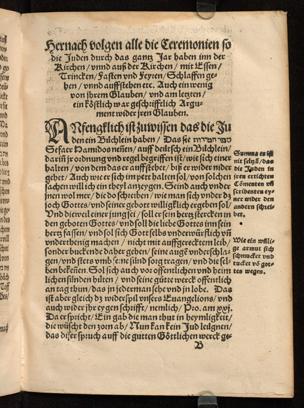 Hernach volgen alle die Ceremonien so
die Juden durch das gantz Jar haben inn der
Kirchen / vnnd auß der Kirchen / mit Essen /
Trincken / Fasten vnd Feyren / Schlaffen ge-
hen / vnnd auffstehen etc. Auch ein wenig
von jhrem Glauben / vnd am letzten /
ein köstlich war geschrifftlich Argu
ment wider jren Glauben.
ANfengklich ist zuwissen das die Ju
den ein Büchlein haben / Das sie
auff deütsch ein Büchlein /
darin jr ordnung vnd regel begriffen ist / wie sich einer
halten / von dem das er auffstehet / biß er wider nider
gehet / Auch wie er sich im peet halten sol / von solchen
sachen will ich ein theyl anzeygen. Seind auch vnder
jnen vol
mer / die do schreiben / wie man sich vnder dz
joch Gottes / vnd seiner gebot williglich ergeben sol /
Vnd die weil einer jung ist / soll er sein hertz stercken in
den geboten Gottes / vnd soll die liebe Gottes inn sein
hertz fassen / vnd soll sich Got selbs vnderwürfflich vñ
vnderthenig machen / nicht mit auffgerecktem leib /
sonder buckende daher gehen / seine aug vnderschla-
gen / vnd stets vmb seine sünd sorg tragen / vnd die sel-
ben bekeñen. Sol sich auch vor offentlichen vnd heim
lichen sünden hüten / vnd seine güte werck offentlich
an tag thun / das in jederman sehe vnd in lobe. Das
ist aber gleich dz widerspil vnsers Euangelions / vnd
auch wider jhr eygen schrifft / nemlich / Pro. am xxvj.
Da er spricht / Ein gab die man thut in heymligkeit /
die wüscht den zorn ab / Nun kan kein Jud leügnen /
das diser spruch auff die gutten Göttlichen werck ge-
B
mit selbs / das
die Juden in
jren ertichten
Cōmenten vñ
scribenten ey-
ner wider den
andern schrei-
bet.
Wie ein willi-
ge armut sich
schmucken vnd
tucken vō got-
tes wegen.